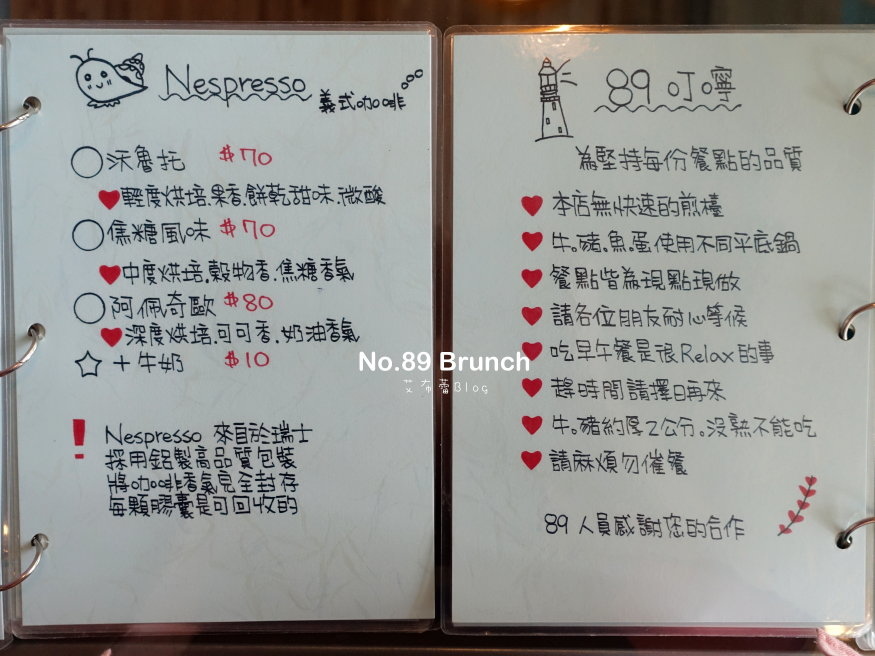 Nespresso 義式咖啡
沃魯托 $70
輕度烘培.果香.餅乾甜味.微酸
焦糖風味 $70
中度烘培.穀物香.焦糖香氣
阿佩奇歐 $80
深度烘培.可可香.奶油香氣
+牛奶 $10
! Nespresso 來自於瑞士
採用鋁製高品質包裝
將咖啡香氣完全封存
每顆膠囊是可回收的
89 叮嚀
為堅持每份餐點的品質
本店無快速的煎檯
牛。豬.魚.蛋使用不同平底鍋
餐點皆為現點現做
請各位朋友耐心等候
吃早午餐是很Relax的事
趕時間請擇日再來
牛。豬約厚2公分。沒熟不能吃
請麻煩勿催餐
89 人員感謝您的合作
No.89 Brunch
艾布蕾Blog